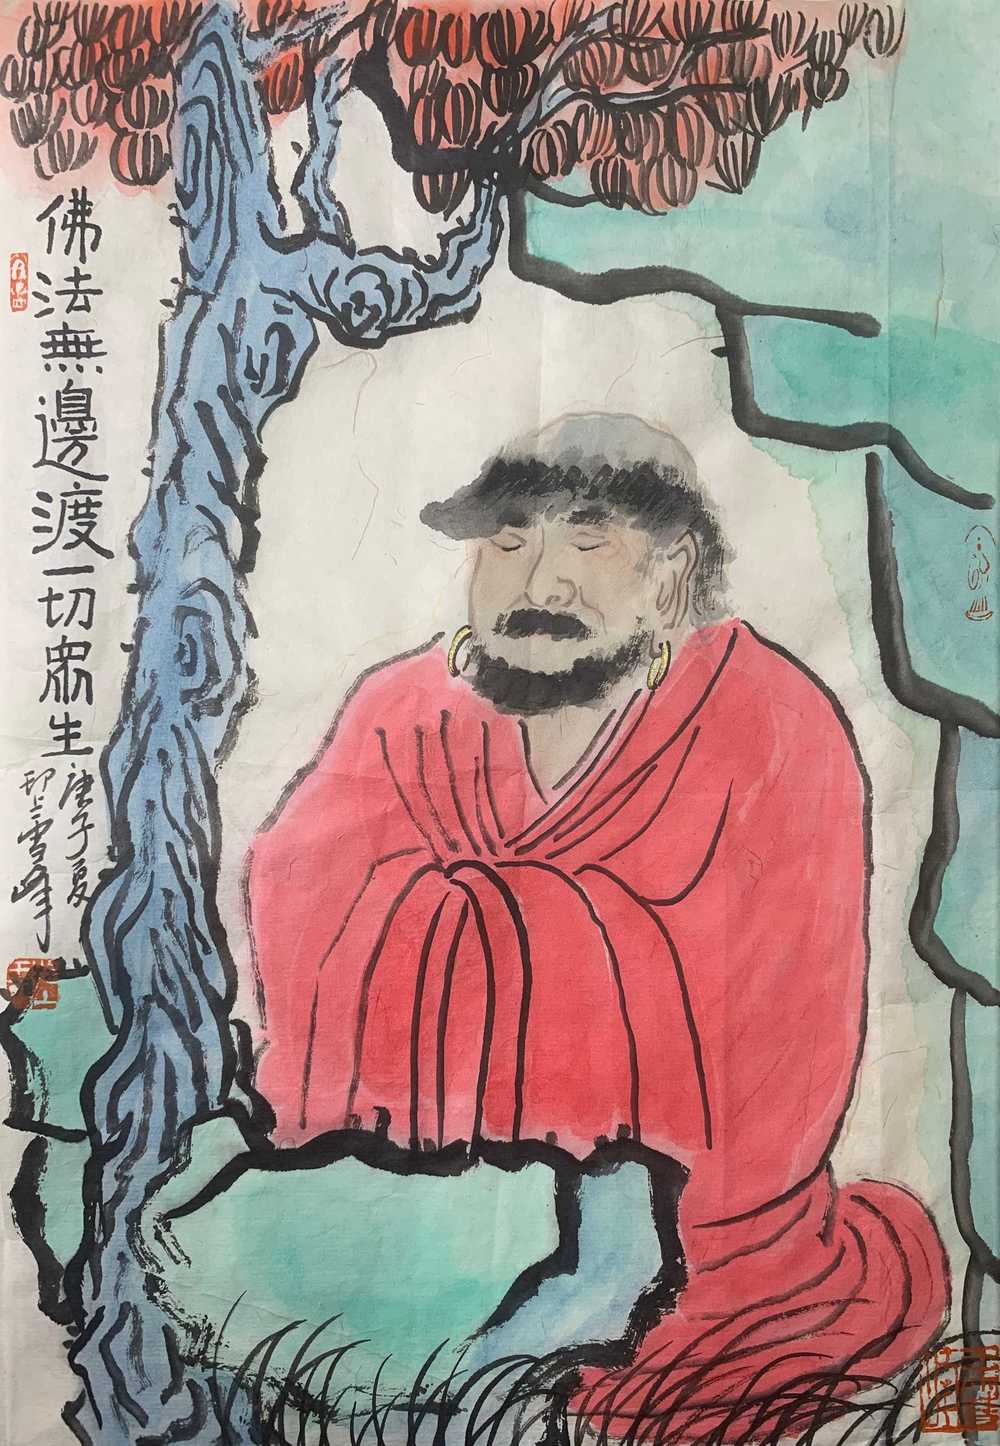 佛法無邊渡一切眾生
庚子夏
邛上雪峰